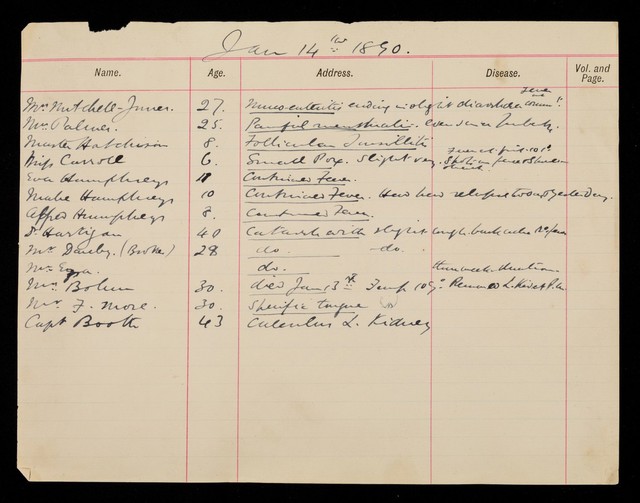 Jan 14th 1890.
Name. Age. Address. Disease. Vol. and Page.
Mrs Mitchell-Innes. 27. ending in slight diarrhoea
Mrs Palmer. 25. Painful menstruation.
Master Hutchison 8. Follicular Tonsillitis
Miss Carroll 6. Small Pox. Slight
Eva Humphreys 11 Continued Fever.
Mabe Humphreys 10 Continued Fever. Has how relapse yesterday.
Alfred Humphreys 8. Continued Fever.
Dr Hartigan 40 Catarrh with slight cough, back ache
Mr Danby. (Broker) 28 do. do.
Mr Ezra. do.
Mrs Bohm 30. died Jan 13th Temp 109° Removed
Mr F. More. 30. Specific tongue
Capt Booth 43 Calculus L. Kidney